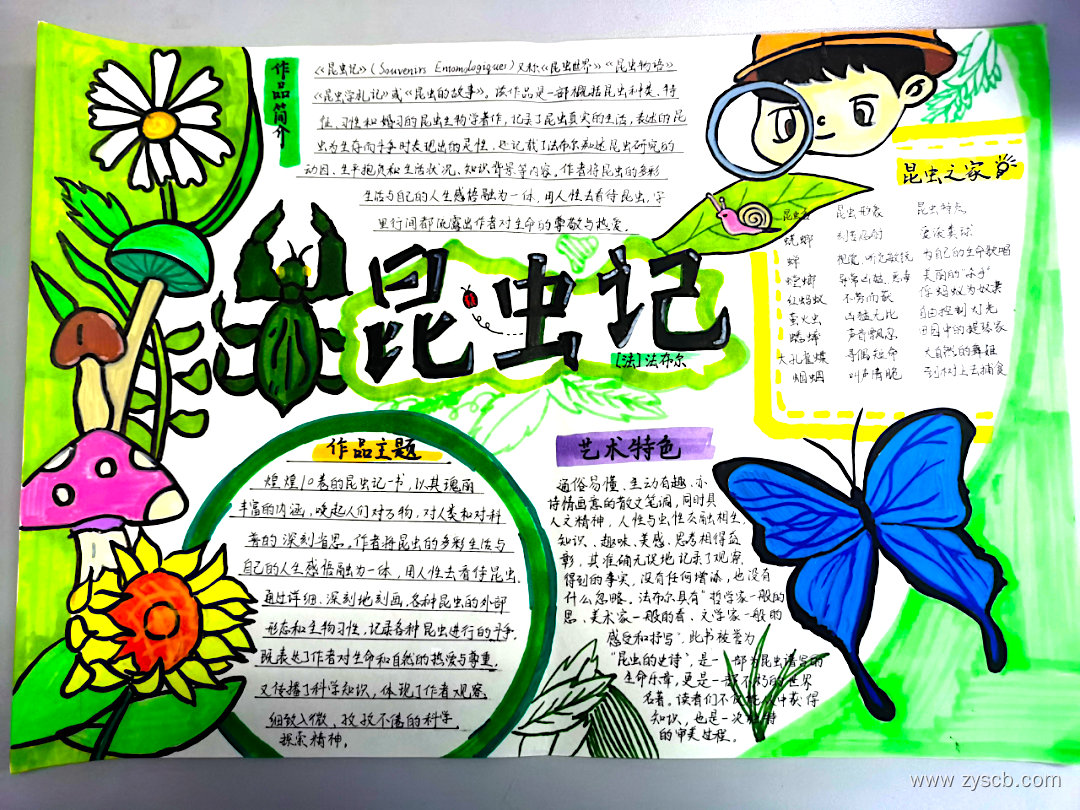 作品简介
《昆虫记》(Souvenirs Entomologiques)又称《昆虫世界》《昆虫物语》
《昆虫学札记》或《昆虫的故事》。该作品是一部概括昆虫种类、特
征、习性和婚习的昆虫生物学著作，记录了昆虫真实的生活，表述的昆
虫为生存而斗争时表现出的灵性，还记载了法布尔痴迷昆虫研究的
动因、生平抱负和生活状况、知识背景等内容。作者将昆虫的多彩
生活与自己的人生感悟融为一体，用人性去看待昆虫，字
里行间都依露出作者对生命的尊敬与热爱。
昆虫记
[法]法布尔
昆虫之家
昆虫形象
昆虫特点
蜣螂
爱滚粪球
蝉
视觉、听觉敏锐
为自己的生命歌唱
螳螂
异常凶猛、
美丽的"杀手"
红蚂蚁
不劳而获
俘蚂蚁为奴隶
萤火虫
凶猛无比
自由控制灯光
蟋蟀
声音飘忽
田园中的提琴家
大孔雀蝶
寻偶短命
大自然的舞姐
蝈蝈
叫声清脆
到树上去捕食
作品主题
煌煌10卷的昆虫记一书，以其瑰丽
丰富的内涵，唤起人们对万物，对人类和对科
普的深刻省思。作者将昆虫的多彩生活与
自己的人生感悟融为一体，用人性去看待昆虫。
通过详细、深刻地刻画各种昆虫的外部
形态和生物习性，记录各种昆虫进行的斗争，
既表达了作者对生命和自然的热爱与尊重，
又传播了科学知识，体现了作者观察
细致入微、孜孜不倦的科学
探索精神。
艺术特色
通俗易懂、生动有趣、亦
诗情画意的散文笔调，同时具
人文精神，人性与虫性交融相生，
知识、趣味、美感、思考相得益
彰，其准确无误地记录了观察
得到的事实，没有任何增添，也没有
什么忽略。法布尔具有"哲学家一般的
思、美术家一般的看、文学家一般的
感受和抒写"。此书被誉为
"昆虫的史诗"，是一部为昆虫谱写的
生命乐章，更是一部不朽的世界
名著。读者们不仅能从中获得
知识，也是一次独特
的审美过程。
www.zyscb.com